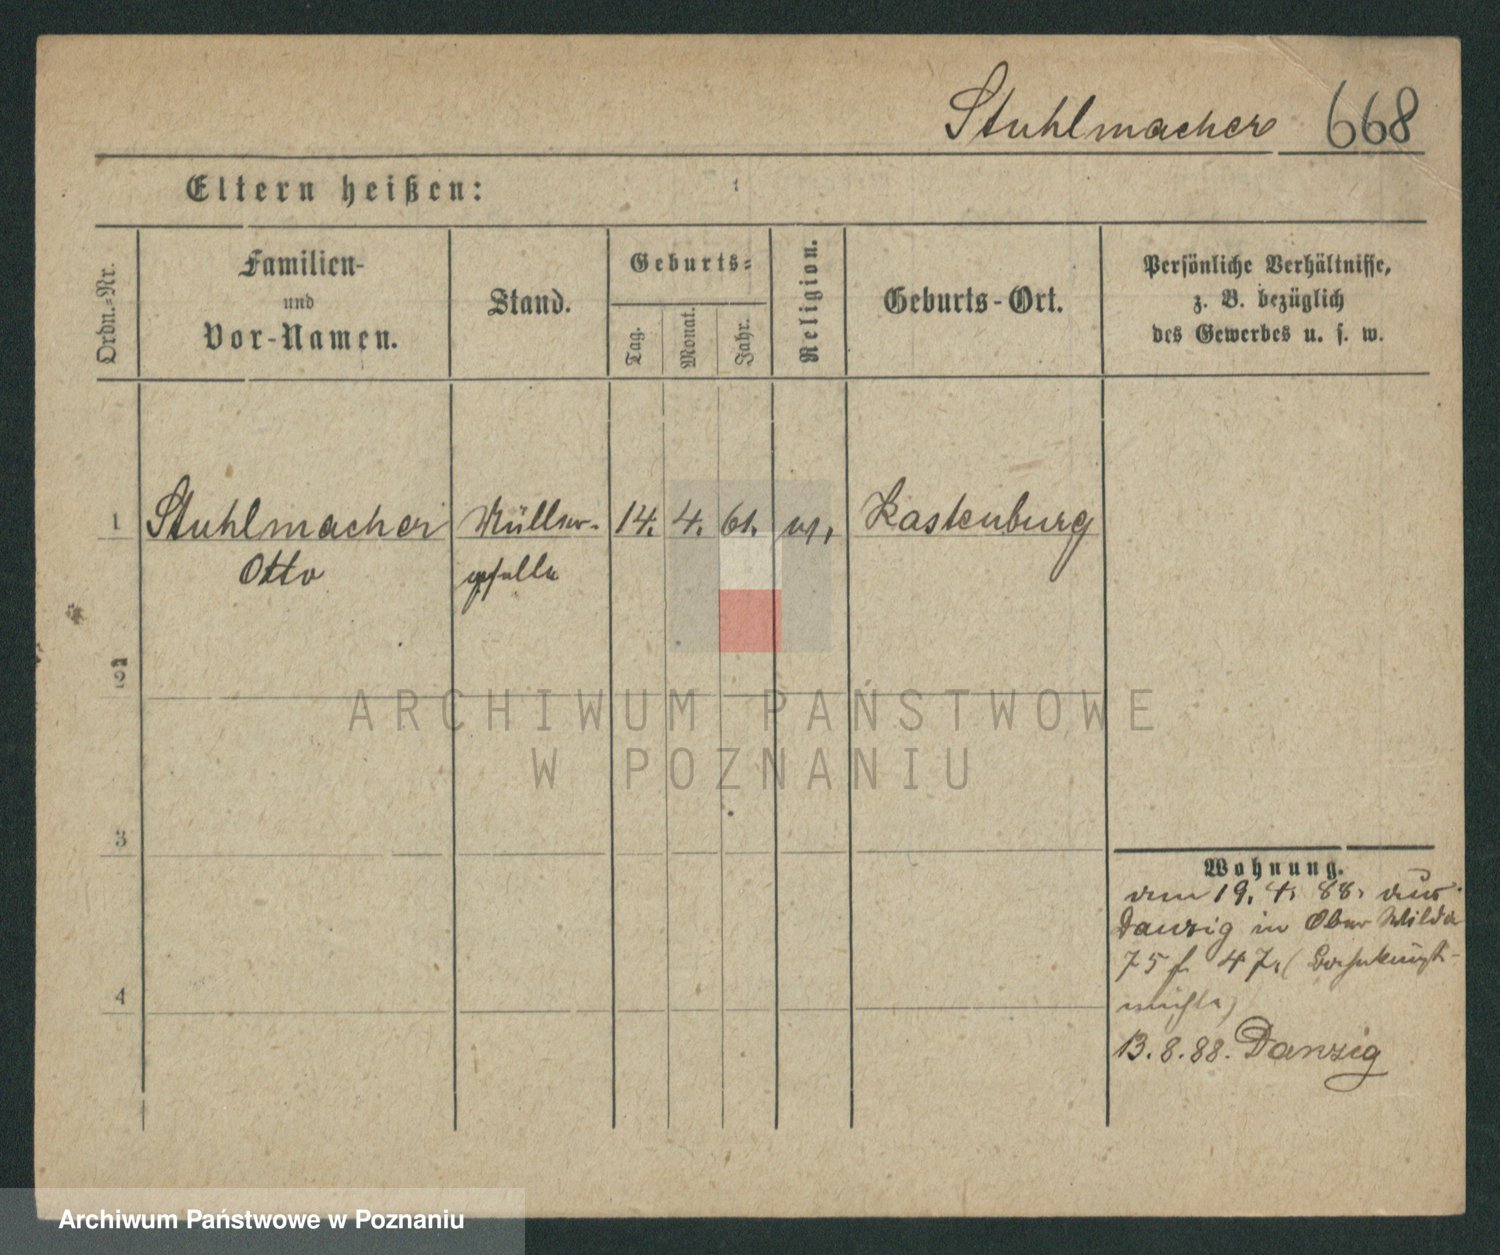 Stuhlmacher 668
Eltern heißen:
Ordn.-Nr.
Familien-
und
Vor-Namen.
Stand.
Geburts-
Tag.
Monat.
Jahr.
Religion.
Geburts-Ort.
Persönliche Verhältnisse,
z. B. bezüglich
des Gewerbes u. s. w.
1 Stuhlmacher Müller- 14. 4. 61. Rastenburg
Otto geselle
2
3
4
Wohnung.
19. 4. 88. aus
Danzig in Ober Wilda
75 f
13. 8. 88. Danzig
ARCHIWUM PAŃSTWOWE
W POZNANIU
Archiwum Państwowe w Poznaniu